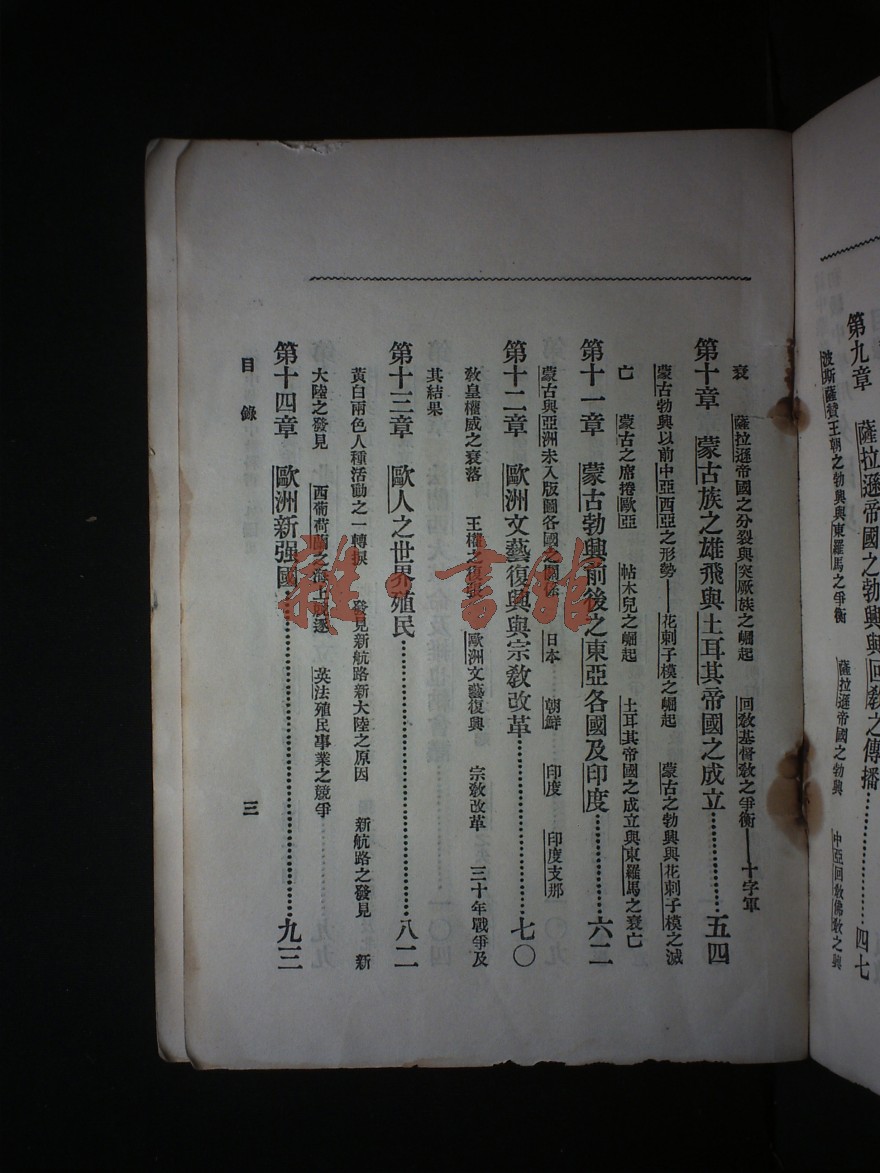 第九章 薩拉遜帝國之勃興與回教之傳播…………四七
波斯薩贊王朝之勃興與東羅馬之爭衡 薩拉遜帝國之勃興 中亞回教佛教之興
衰 薩拉遜帝國之分裂與突厥族之崛起 回教基督教之爭衡——十字軍
第十章 蒙古族之雄飛與土耳其帝國之成立…………五四
蒙古勃興以前中亞西亞之形勢——花剌子模之崛起 蒙古之勃興與花剌子模之滅
亡 蒙古之席捲歐亞 帖木兒之崛起 土耳其帝國之成立與東羅馬之衰亡
第十一章 蒙古勃興前後之東亞各國及印度…………六二
蒙古與亞洲未入版圖各國之關係 日本 朝鮮 印度 印度支那
第十二章 歐洲文藝復興與宗教改革…………七〇
教皇權威之衰落 王權之復張 歐洲文藝復興 宗教改革 三十年戰爭及
其結果
第十三章 歐人之世界殖民…………八二
黃白兩色人種活動之一轉捩 發見新航路新大陸之原因 新航路之發見 新
大陸之發見 西葡荷蘭之海上競逐 英法殖民事業之競爭
第十四章 歐洲新强國…………九三
目錄
三
雜·書館